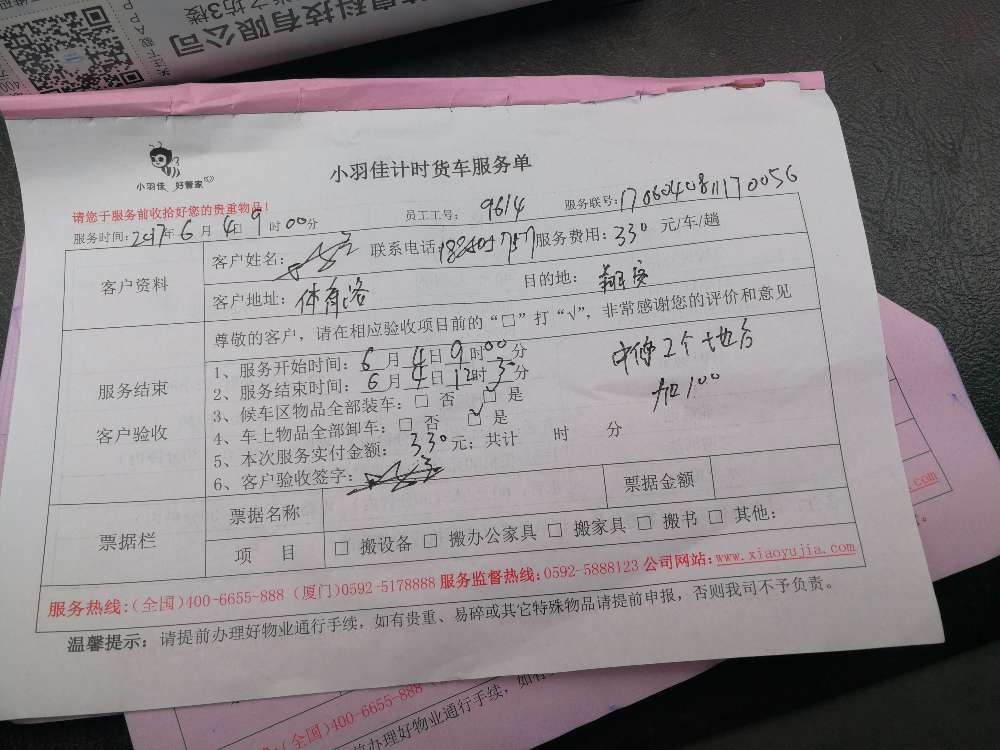 息科技有限公司
之坊3楼
小羽佳 好管家
小羽佳计时货车服务单
请您于服务前收拾好您的贵重物品!
服务时间:2017年6月4日9时00分 员工工号: 9614 服务联号:170604081170056
客户资料
客户姓名: 联系电话: 服务费用:330元/车/趟
客户地址:体育路 目的地:
服务结束
客户验收
尊敬的客户,请在相应验收项目前的“□”打“√”,非常感谢您的评价和意见
1、服务开始时间:6月4日9时00分
2、服务结束时间:6月4日12时3分
3、候车区物品全部装车:□ 否 ☑ 是
4、车上物品全部卸车:□ 否 ☑ 是
5、本次服务实付金额:330元;共计 时 分
6、客户验收签字:
中停2个地方
加100
票据栏
票据名称 票据金额
项 目 □ 搬设备 □ 搬办公家具 □ 搬家具 □ 搬书 □ 其他:
服务热线:(全国)400-6655-888 (厦门)0592-5178888 服务监督热线:0592-5888123 公司网站:www.xiaoyujia.com
温馨提示:请提前办理好物业通行手续,如有贵重、易碎或其它特殊物品请提前申报,否则我司不予负责。
.com
(全国)400-6655-888
办理好物业通行手续,如有